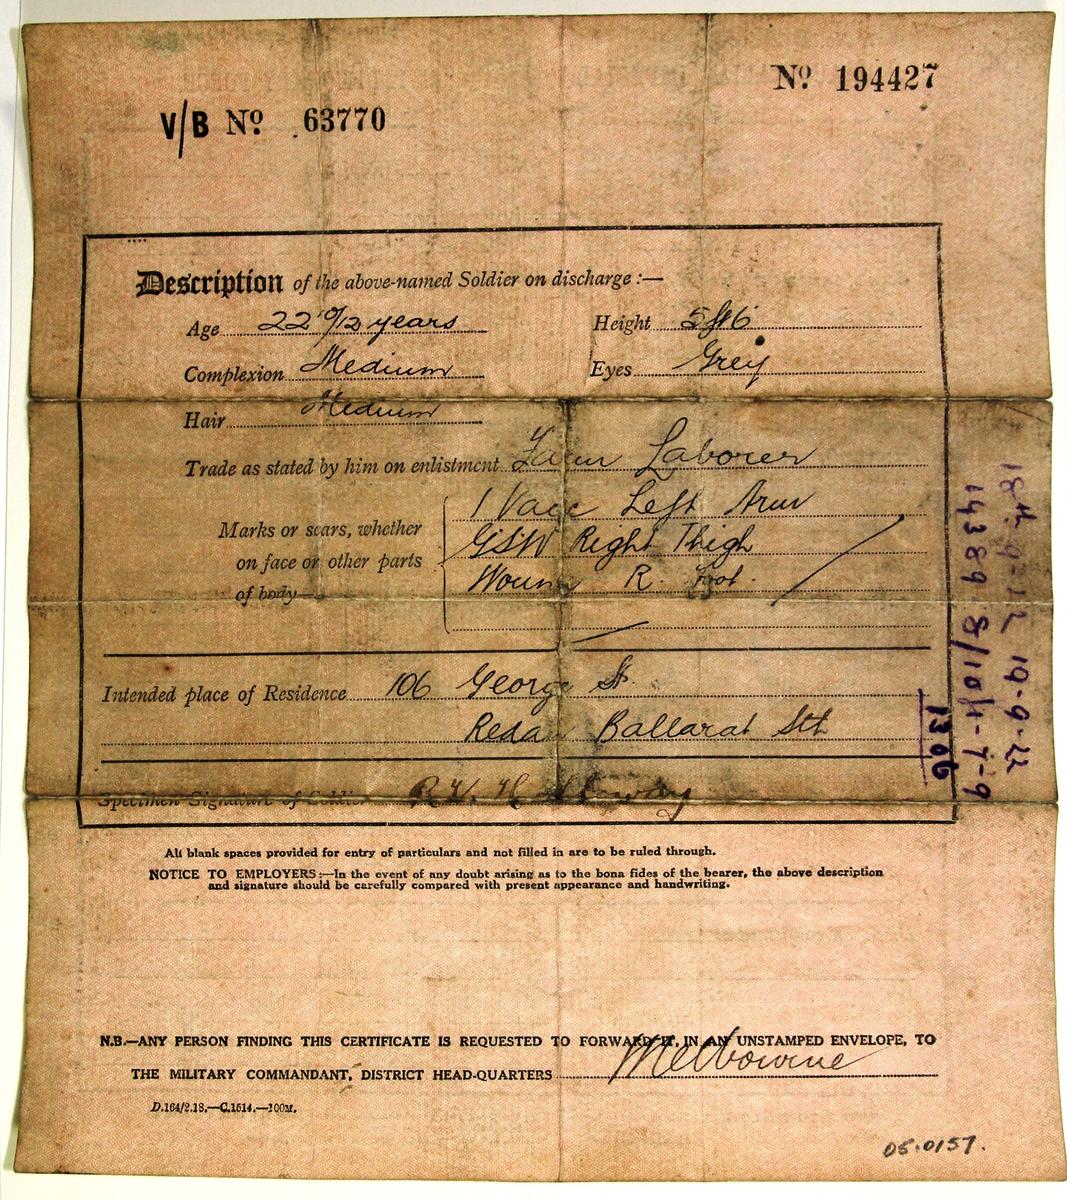 Nº 194427
V/B Nº 63770
Description of the above-named Soldier on discharge :—
Age 22 9/12 years Height 5ft6
Complexion Medium Eyes Grey
Hair Medium
Trade as stated by him on enlistment Farm Laborer
Marks or scars, whether on face or other parts of body—
1 Vacc Left Arm
GSW Right Thigh
Wound R. Foot.
Intended place of Residence 106 George St.
Redan Ballarat Sth
Specimen Signature of Soldier R.W.
All blank spaces provided for entry of particulars and not filled in are to be ruled through.
NOTICE TO EMPLOYERS:—In the event of any doubt arising as to the bona fides of the bearer, the above description
and signature should be carefully compared with present appearance and handwriting.
N.B.—ANY PERSON FINDING THIS CERTIFICATE IS REQUESTED TO FORWARD IT, IN AN UNSTAMPED ENVELOPE, TO
THE MILITARY COMMANDANT, DISTRICT HEAD-QUARTERS Melbourne
D.164/2.18.—C.1514.—100M.
05.0157.
18th 9-22 19-9-22
14389
1366